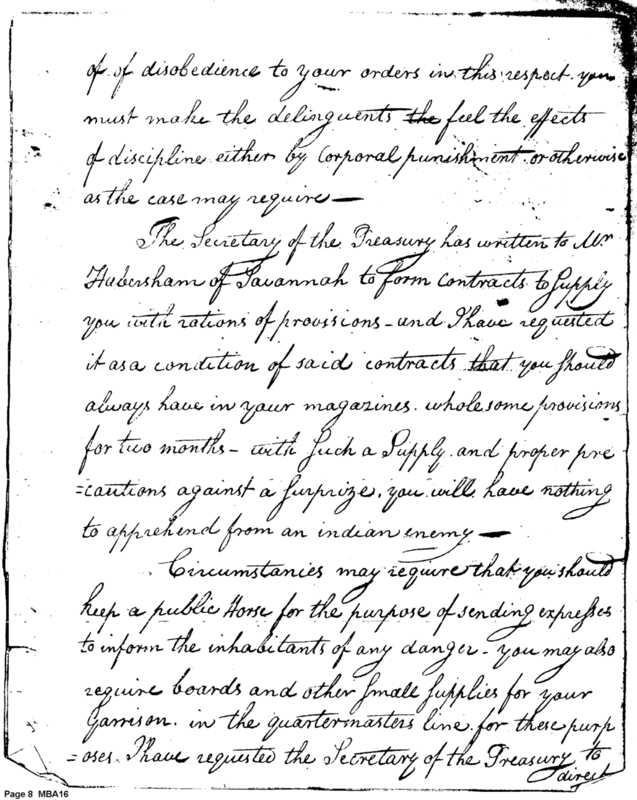 of of disobedience to your orders in this respect you
must make the delinquents the feel the effects
of discipline either by Corporal punishment or otherwise
as the case may require —
The Secretary of the Treasury has written to Mr
Habersham of Savannah to form Contracts to Supply
you with rations of provisions - and I have requested
it as a condition of said contracts that you should
always have in your magazines. wholesome provisions
for two months - with Such a Supply. and proper pre
=cautions against a Surprize, you will have nothing
to apprehend from an indian enemy —
Circumstancies may require that you should
keep a public Horse for the purpose of sending expresses
to inform the inhabitants of any danger - you may also
require boards and other Small Supplies for your
Garrison. in the quartermasters line. for these purp
=oses. I have requested the Secretary of the Treasury to
direct
Page 8 MBA16